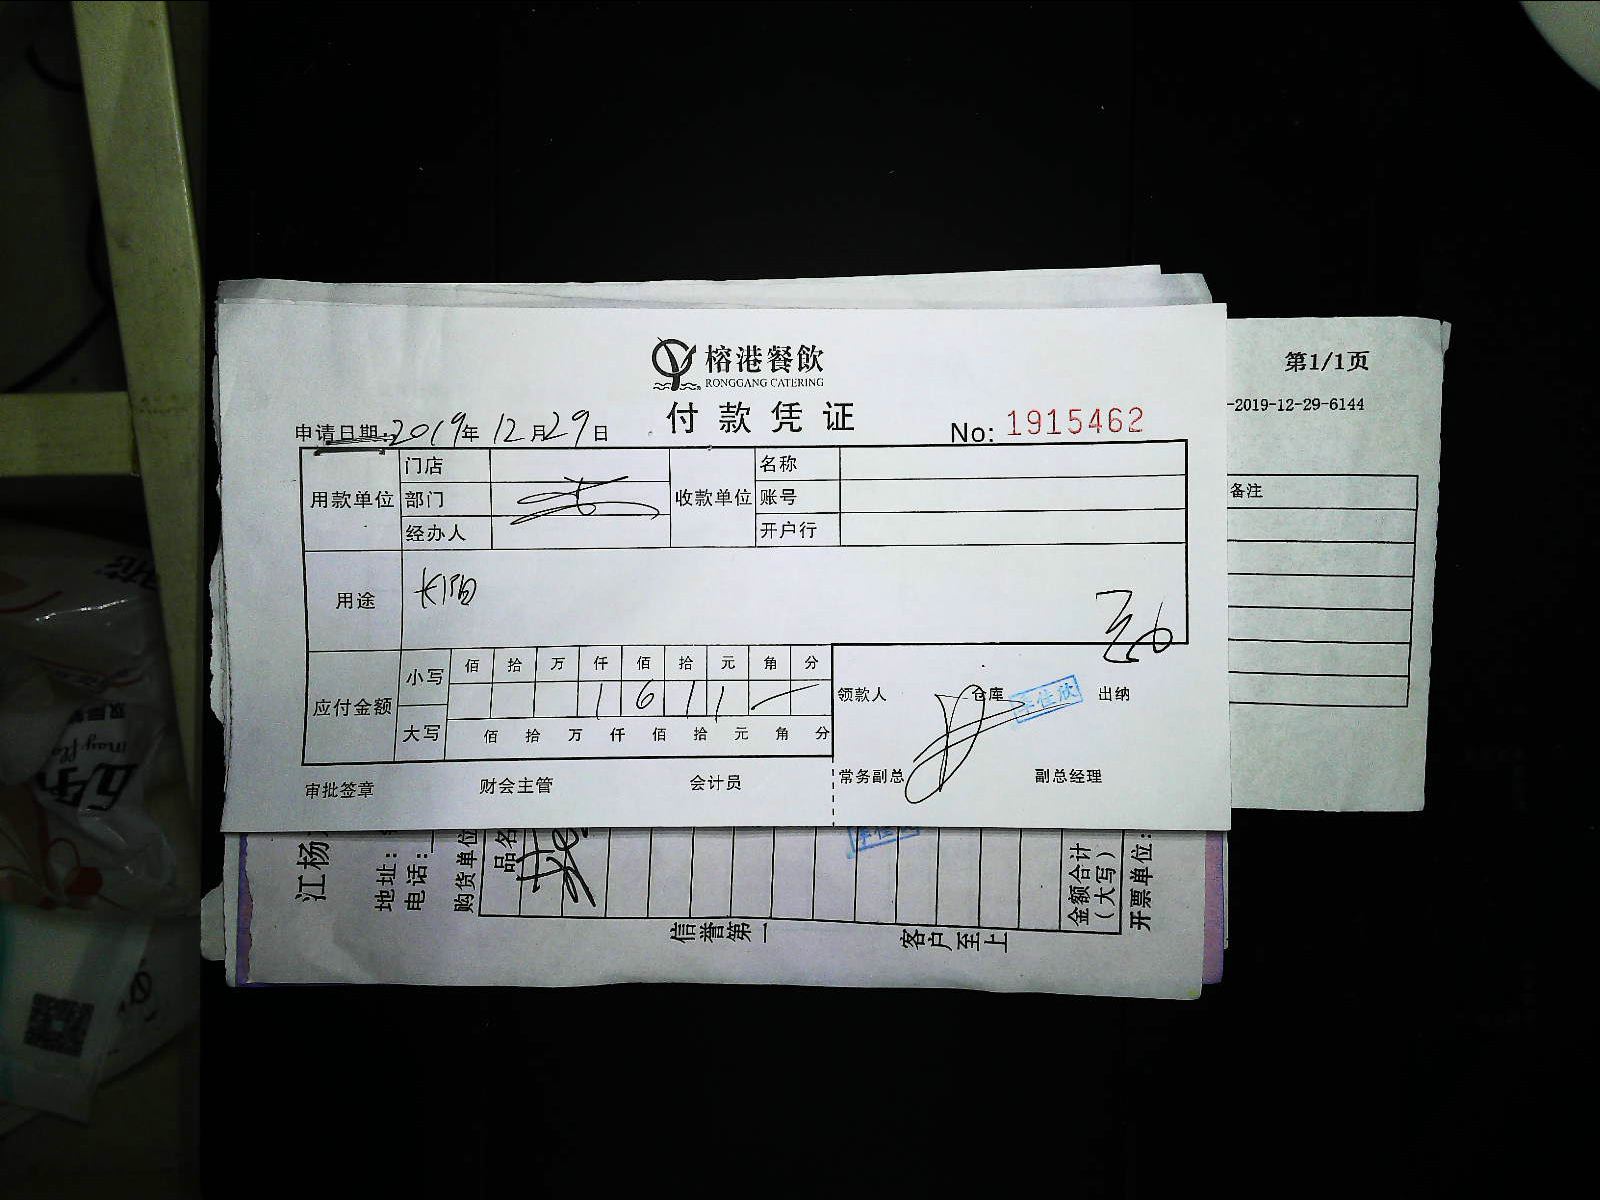 榕港餐飲
RONGGANG CATERING
付款凭证
申请日期:2019年12月29日
No: 1915462
用款单位
门店
部门
经办人
收款单位
名称
账号
开户行
用途
长阳
应付金额
小写
佰 拾 万 仟 佰 拾 元 角 分
1 6 1 1 —
大写
佰 拾 万 仟 佰 拾 元 角 分
领款人
仓库
李佳欣
出纳
审批签章
财会主管
会计员
常务副总
副总经理
第1/1页
-2019-12-29-6144
备注
江杨
地址:
电话:
购货单位
品名
金额合计
(大写)
开票单位:
信誉第一
客户至上